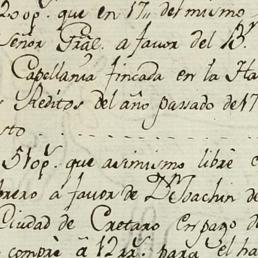 200p.s que en 17,, del mismo
Señor Gräl. a favor del B.r
Capellania fincada en la Ha
Reditos del año pasado de 17
sto
510p.s que asimismo libré e
brero a favor de D.n Joachin de
Ciudad de Cretaro en pago d
compré à 12 rr.s para el ha